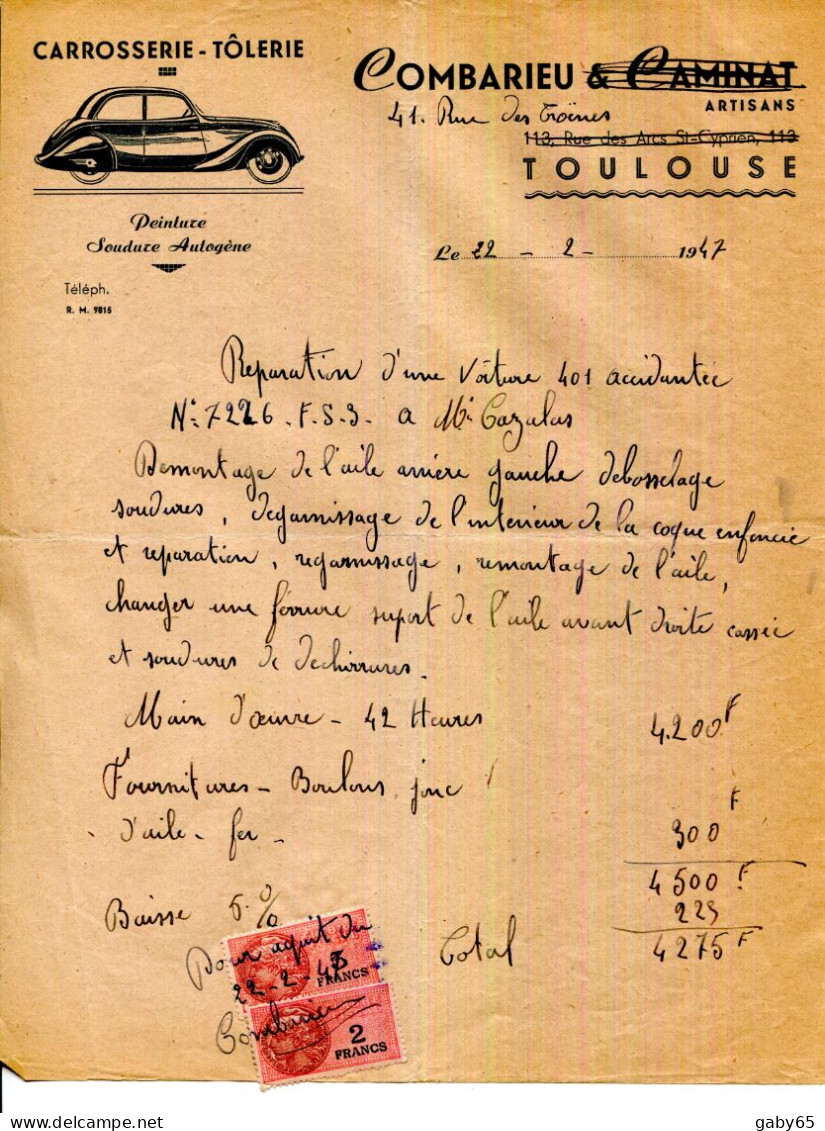 CARROSSERIE - TÔLERIE
COMBARIEU & CAMINAT
ARTISANS
41. Rue des Troënes
113, Rue des Arcs St-Cyprien, 113
TOULOUSE
Peinture
Soudure Autogène
Le 22 - 2 - 1947
Téléph.
R. M. 9815
Reparation d'une Voiture 401 accidantée
N°: 7226. F.S.3. a Mr Cazalas
Demontage de l'aile arrière gauche debosselage
soudures, degarnissage de l'interieur de la coque enfoncée
et reparation, regarnissage, remontage de l'aile,
changer une férrure suport de l'aile avant droite cassée
et soudures de dechirrures.
Main d'œuvre - 42 Heures 4.200F
Fournitures - Boulons, jonc
d'aile - fer - 300F
4500F
Baisse 5% 225
Total 4275F
Pour aquit du
22-2-47
FRANCS
Combarieu
2
FRANCS
gaby65